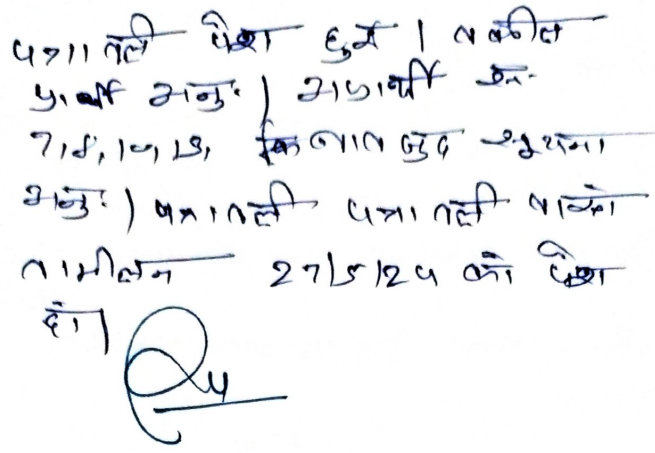 पत्रावली पेश हुई। वकील
प्रार्थी अनु:। अप्रार्थी सं.
7, 8, 10, 13, बावजूद सूचना
अनु:। पत्रावली पत्रावली वास्ते
तामील 27/5/24 को पेश
हो।